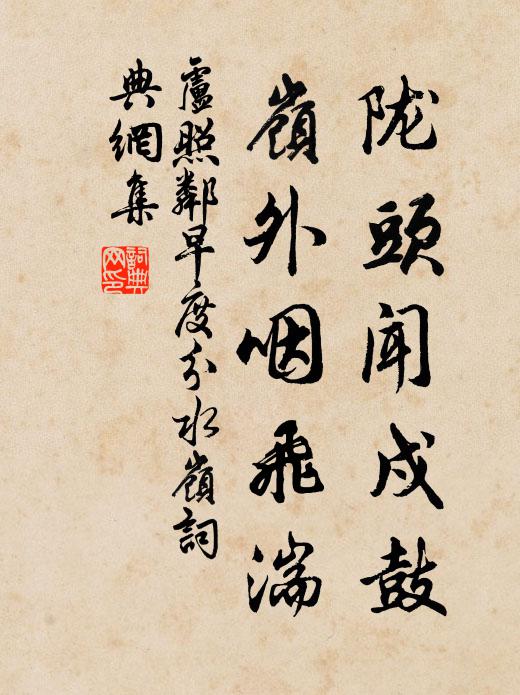 陇頭聞戍鼓
嶺外咽飛湍
盧照鄰早度分水嶺詞
典網集
詞典网印